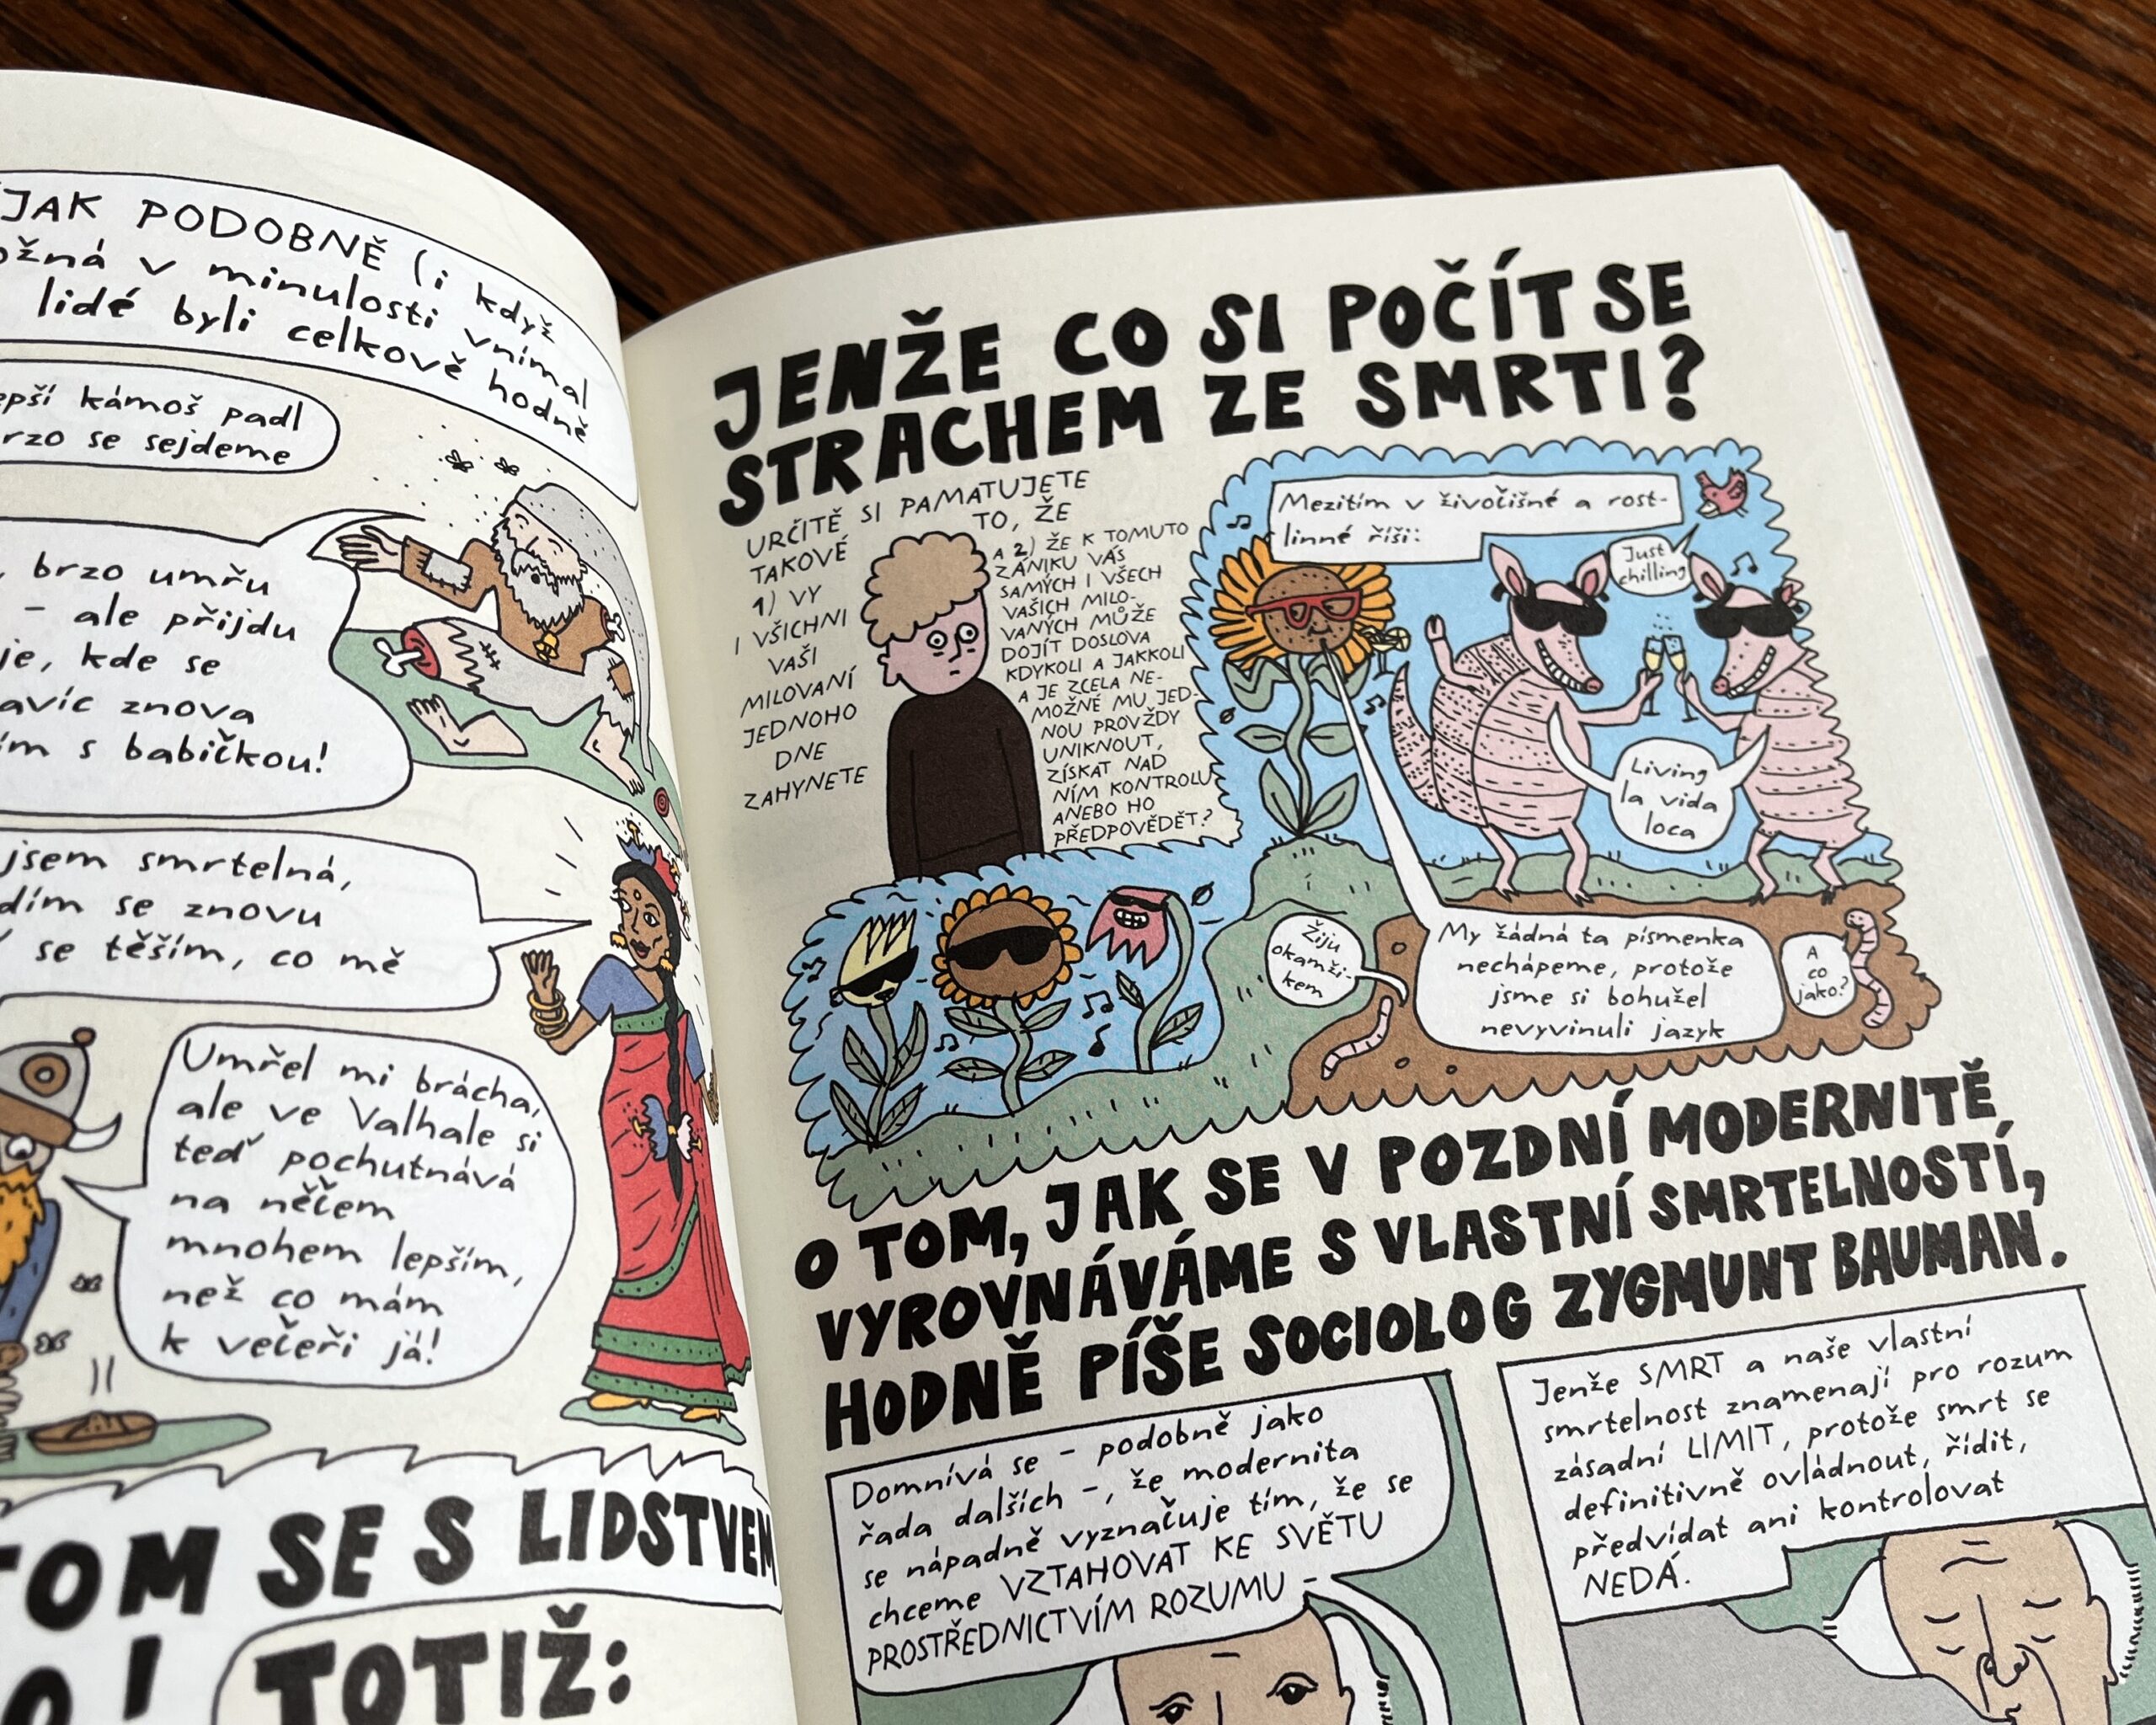 JAK PODOBNĚ (i když
v minulosti vnímal
lidé byli celkově hodně
kámoš padl
se sejdeme
brzo umřu
– ale přijdu
kde se
znova
s babičkou!
jsem smrtelná,
se znovu
se těším, co mě
Umřel mi brácha,
ale ve Valhale si
teď pochutnává
na něčem
mnohem lepším,
než co mám
k večeři já!
TOM SE S LIDSTVEM
TOTIŽ:
JENŽE CO SI POČÍT SE
STRACHEM ZE SMRTI?
URČITĚ SI PAMATUJETE
TAKOVÉ TO, ŽE
1) VY
I VŠICHNI
VAŠI
MILOVANÍ
JEDNOHO
DNE
ZAHYNETE
A 2) ŽE K TOMUTO
ZÁNIKU VÁS
SAMÝCH I VŠECH
VAŠICH MILO-
VANÝCH MŮŽE
DOJÍT DOSLOVA
KDYKOLI A JAKKOLI
A JE ZCELA NE-
MOŽNÉ MU JED-
NOU PROVŽDY
UNIKNOUT,
ZÍSKAT NAD
NÍM KONTROLU
ANEBO HO
PŘEDPOVĚDĚT?
Mezitím v živočišné a rost-
linné říši:
Just
chilling
Living
la vida
loca
Žiju
okamži-
kem
My žádná ta písmenka
nechápeme, protože
jsme si bohužel
nevyvinuli jazyk
A
co
jako?
O TOM, JAK SE V POZDNÍ MODERNITĚ
VYROVNÁVÁME S VLASTNÍ SMRTELNOSTÍ,
HODNĚ PÍŠE SOCIOLOG ZYGMUNT BAUMAN.
Domnívá se – podobně jako
řada dalších –, že modernita
se nápadně vyznačuje tím, že se
chceme VZTAHOVAT KE SVĚTU
PROSTŘEDNICTVÍM ROZUMU –
Jenže SMRT a naše vlastní
smrtelnost znamenají pro rozum
zásadní LIMIT, protože smrt se
definitivně ovládnout, řídit,
předvídat ani kontrolovat
NEDÁ.